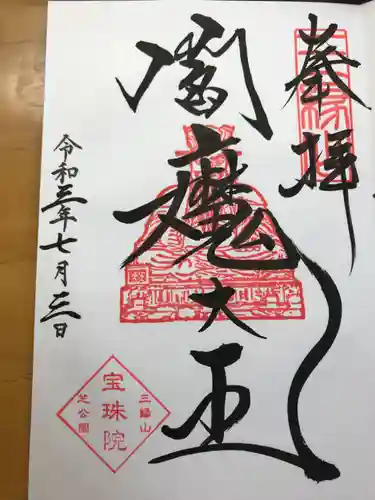 奉拝
閻魔大王
令和三年七月三日
三縁山
宝珠院
芝公園